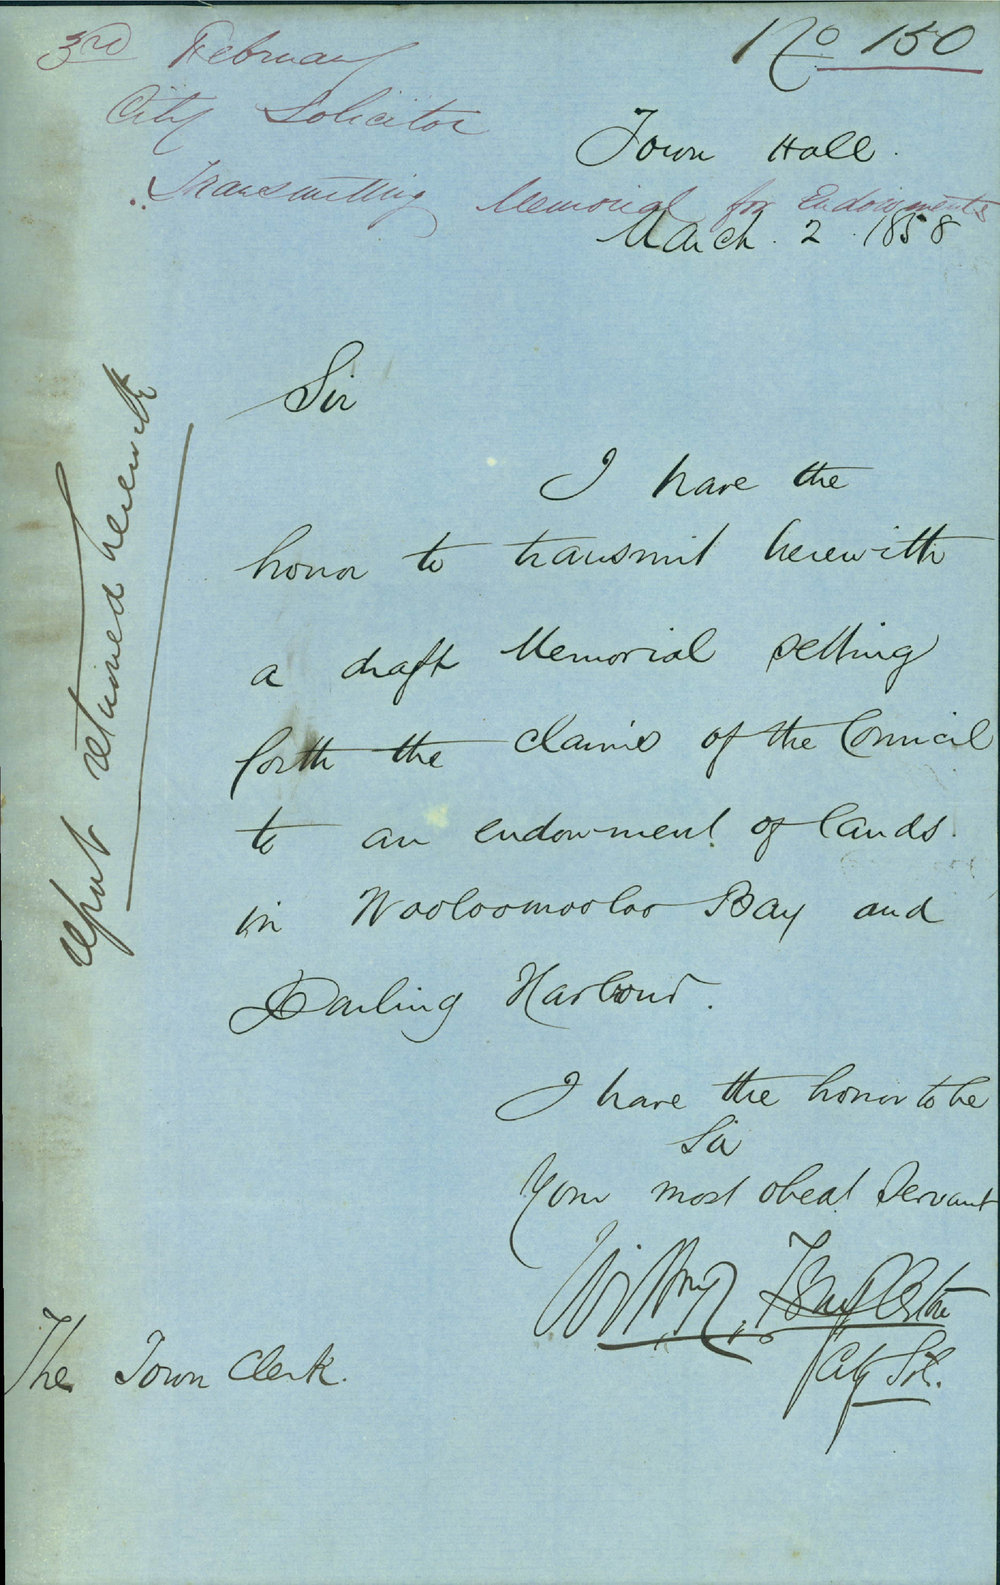 No 150
3rd February
City Solicitor
Transmitting Memorial for Endowments
Town Hall.
March. 2. 1858
Sir
I have the
honor to transmit herewith
a draft Memorial setting
forth the claims of the Council
to an endowment of lands
in Wooloomooloo Bay and
Darling Harbour.
I have the honor to be
Sir
Your most obedt Servant
City Sol.
The Town Clerk.
report returned herewith